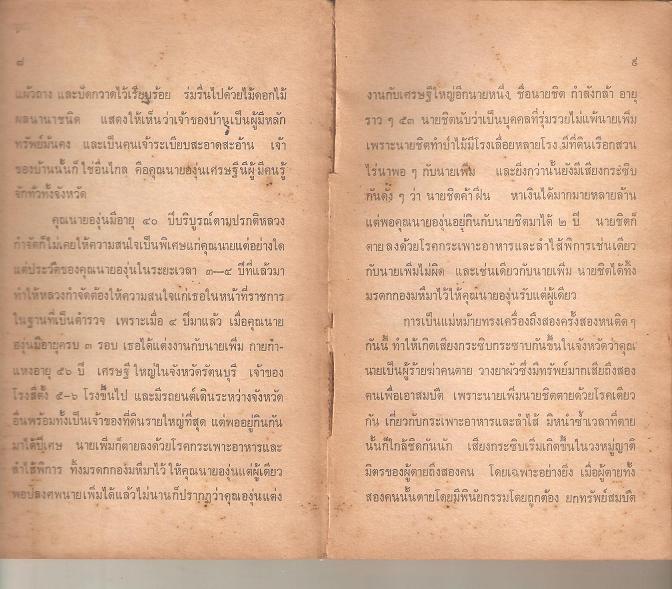 ๘
แผ้วถาง และปัดกวาดไว้เรียบร้อย ร่มรื่นไปด้วยไม้ดอกไม้
ผลนานาชนิด แสดงให้เห็นว่าเจ้าของบ้านเป็นผู้มีหลัก
ทรัพย์มั่นคง และเป็นคนเจ้าระเบียบสะอาดสะอ้าน เจ้า
ของบ้านนั้นก็ใช่อื่นไกล คือคุณนายองุ่นเศรษฐินีผู้มีคนรู้
จักทั่วทั้งจังหวัด
คุณนายองุ่นมีอายุ ๔๐ ปีบริบูรณ์ตามปรกติหลวง
กำจัดก็ไม่เคยให้ความสนใจเป็นพิเศษแก่คุณนายแต่อย่างใด
แต่ประวัติของคุณนายองุ่นในระยะเวลา ๓—๔ ปีที่แล้วมา
ทำให้หลวงกำจัดต้องให้ความสนใจแก่เธอในหน้าที่ราชการ
ในฐานที่เป็นตำรวจ เพราะเมื่อ ๔ ปีมาแล้ว เมื่อคุณนาย
องุ่นมีอายุครบ ๓ รอบ เธอได้แต่งงานกับนายเพิ่ม กายกำ-
แหงอายุ ๕๖ ปี เศรษฐีใหญ่ในจังหวัดรัตนบุรี เจ้าของ
โรงสีตั้ง ๕-๖ โรงขึ้นไป และมีรถยนต์เดินระหว่างจังหวัด
อื่นพร้อมทั้งเป็นเจ้าของที่ดินรายใหญ่ที่สุด แต่พออยู่กินกัน
มาได้ปีเศษ นายเพิ่มก็ตายลงด้วยโรคกระเพาะอาหารและ
ลำไส้พิการ ทั้งมรดกกองมหึมาไว้ให้คุณนายองุ่นแต่ผู้เดียว
พอปลงศพนายเพิ่มได้แล้วไม่นานก็ปรากฏว่าคุณองุ่นแต่ง
๙
งานกับเศรษฐีใหญ่อีกนายหนึ่ง ชื่อนายชิต กำลังกล้า อายุ
ราว ๆ ๕๓ นายชิตนับว่าเป็นบุคคลที่รุ่มรวยไม่แพ้นายเพิ่ม
เพราะนายชิตทำป่าไม้มีโรงเลื่อยหลายโรง มีที่ดินเรือกสวน
ไร่นาพอ ๆ กับนายเพิ่ม และยิ่งกว่านั้นยังมีเสียงกระซิบ
กันดัง ๆ ว่า นายชิตค้าฝิ่น หาเงินได้มากมายหลายล้าน
แต่พอคุณนายองุ่นอยู่กินกับนายชิตมาได้ ๒ ปี นายชิตก็
ตายลงด้วยโรคกระเพาะอาหารและลำไส้พิการเช่นเดียว
กับนายเพิ่มไม่ผิด และเช่นเดียวกับนายเพิ่ม นายชิตได้ทิ้ง
มรดกกองมหึมาไว้ให้คุณนายองุ่นรับแต่ผู้เดียว
การเป็นแม่หม้ายทรงเครื่องถึงสองครั้งสองหนติดๆ
กันนี้ ทำให้เกิดเสียงกระซิบกระซาบกันขึ้นในจังหวัดว่าคุณ
นายเป็นผู้ร้ายฆ่าคนตาย วางยาผัวซึ่งมีทรัพย์มากเสียถึงสอง
คนเพื่อเอาสมบัติ เพราะนายเพิ่มนายชิตตายด้วยโรคเดียว
กัน เกี่ยวกับกระเพาะอาหารและลำไส้ มิหนำซ้ำเวลาที่ตาย
นั้นก็ใกล้ชิดกันนัก เสียงกระซิบเริ่มเกิดขึ้นในวงหมู่ญาติ
มิตรของผู้ตายถึงสองคน โดยเฉพาะอย่างยิ่ง เมื่อผู้ตายทั้ง
สองคนนั้นตายโดยมีพินัยกรรมโดยถูกต้อง ยกทรัพย์สมบัติ